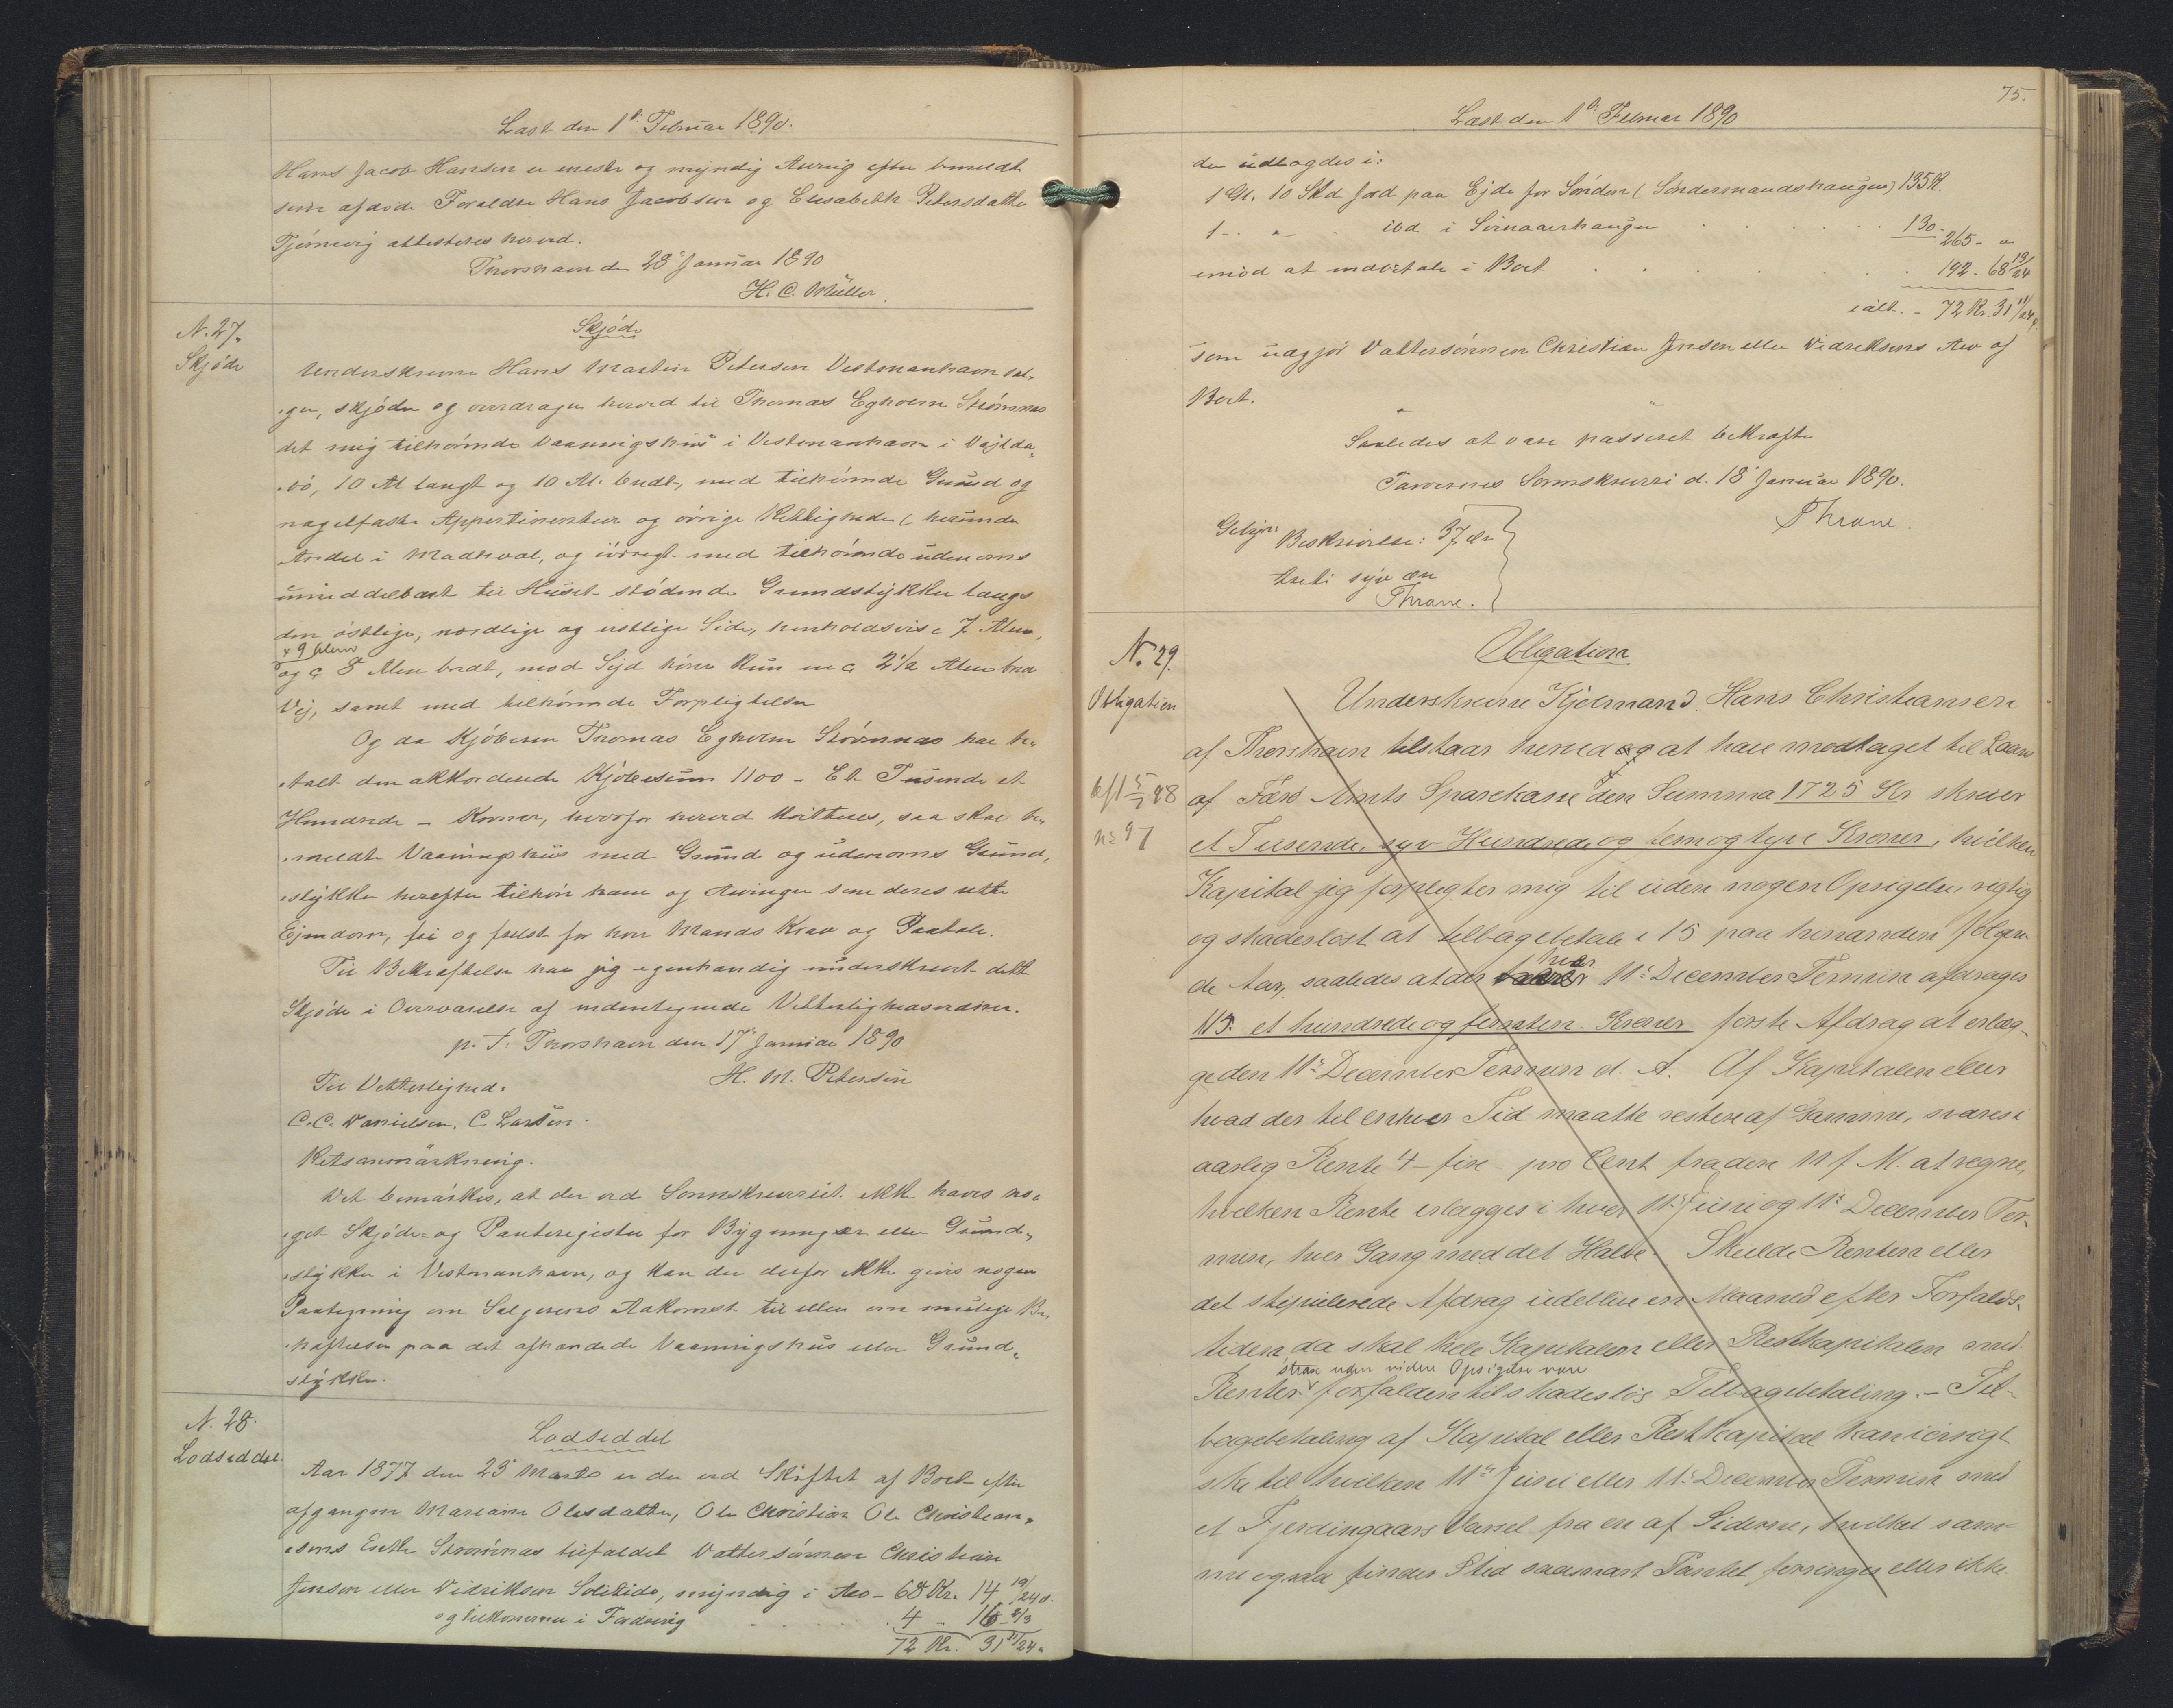 Læst den 1ste Februar 1890.
Hans Jacob Hansen er eneste og myndig Arving efter bemeldt
sine afdøde Forældre Hans Jacobsen og Elisabeth Petersdatter
Tjørnevig attesteres herved.
Thorshavn den 28de Januar 1890
H. C. Müller.
N. 27.
Skjøde
Skjøde
Underskrevne Hans Martin Petersen Vestmanhavn sæl-
ger, skjøder og overdrager herved til Thomas Egholm Strømnæs
det mig tilhørende Vaaningshus i Vestmanhavn i
10 Al langt og 10 Al. bredt, med tilhørende Grund og
nagelfaste Appertinentier og øvrige Rettigheder (herunder
Andel i Madhval, og iøvrigt med tilhørende udenoms
umiddelbart til Huset stødende Grundstykker langs
den østlige, nordlige og vestlige Side, henholdsvis c 7 Alen,
x 9 Alen
og c 8 Alen bredt, mod Syd hører kun en c 2 1/2 Alen bred
Vej, samt med tilhørende Forpligtelser
Og da Kjøberen Thomas Egholm Strømnæs har be-
talt den akkorderede Kjøbesum 1100 - Et Tusinde et
Hundrede - Kroner, hvorfor herved kvitteres, saa skal be-
meldte Vaaningshus med Grund og udenoms Grund-
stykker herefter tilhøre ham og Arvinger som deres rette
Ejendom, fri og frelst for hver Mands Krav og Paatale.
Til Bekræftelse har jeg egenhændig underskrevet dette
Skjøde i Overværelse af undertegnede Vitterlighedsvidner.
p. t. Thorshavn den 17de Januar 1890
H. M. Petersen
Til Vitterlighed:
C. C. Danielsen. C. Larsen.
Retsanmærkning.
Det bemærkes, at der ved Sorenskriveriet ikke haves no-
get Skjøde- og Panteregister for Bygninger eller Grund-
stykker i Vestmanhavn, og kan der derfor ikke gives nogen
Paategning om Sælgerens Adkomst til eller om mulige Be-
hæftelser paa det afhændede Vaaningshus eller Grund-
stykker.
N. 28.
Lodseddel.
Lodseddel
Aar 1877 den 23de Marts er der ved Skiftet af Boet efter
afgangne Mariane Olesdatter, Ole Christian Ole Christian-
sens Enke Strømnæs tilfaldet Dattersønnen Christian
Jensen eller Didriksen Selletræ, myndig i Arv - 68 Kr. 14 19/24 ø.
og tilkommer i Fordring 4 - 16 2/3
72 Kr. 31 11/24 "
75.
Læst den 1ste Februar 1890
der udlagdes i:
1 Gl. 10 Skd Jord paa Ejde for Sønden (Søndermandshaugen) 135 Kr.
1 - " - ibd i 130 -
265 - "
imod at indbetale i Boet 192 - 68 13/24
ialt - 72 Kr. 31 11/24 ø.
som udgjør Dattersønnen Christian Jensen eller Didriksens Arv af
Boet.
Saaledes at være passeret bekræfter
Færøernes Sorenskriveri d. 18de Januar 1890.
Thrane.
Gebyr:
Beskrivelse: 37 Øre
treti syv Øre
Thrane.
N. 29.
Obligation
Obligation
Underskrevne Kjøbmand Hans Christiansen
af Thorshavn tilstaar herved og at have modtaget til Laan
af Færø Amts Sparekasse den Summa 1725 Kr skriver
et Tusende, syv Hundrede og femogtyve Kroner, hvilken
Kapital jeg forpligter mig til uden nogen Opsigelse rigtig
og skadesløst at tilbagebetale i 15 paa hinanden følgen-
de Aar, saaledes at der hver 11te December Termin afdrages
115. et hundrede og femten Kroner første Afdrag at erlæg-
ge den 11te December Termin d. A. Af Kapitalen eller
hvad der til enhver Tid maatte restere af Samme, svares i
aarlig Rente 4 - fire - pro Cent fra den 11 f M. at regne,
hvilken Rente erlægges i hver 11te Juni og 11te December Ter-
min, hver Gang med det Halve. Skulde Renten eller
det stipulerede Afdrag udeblive en Maaned efter Forfalds-
tiden, da skal hele Kapitalen eller Restkapitalen med
strax uden videre Opsigelse være
Renter forfalden til skadesløs Tilbagebetaling. - Til-
bagebetaling af Kapital eller Restkapital kan iøvrigt
ske til hvilken 11te Juni eller 11te December Termin med
et Fjerdingaars Varsel fra en af Siderne, hvilket sam-
me ogsaa finder Sted saasnart Pantet forringes eller ikke